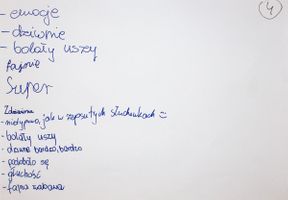 4
- emocje
- dziwnie
- bolały uszy
fajnie
Super
Zdziwienie
- nietypowo, jak w zepsutych słuchawkach :)
- bolały uszy
- dziwnie bardzo, bardzo
- podobało się
- głuchość
- fajna zabawa